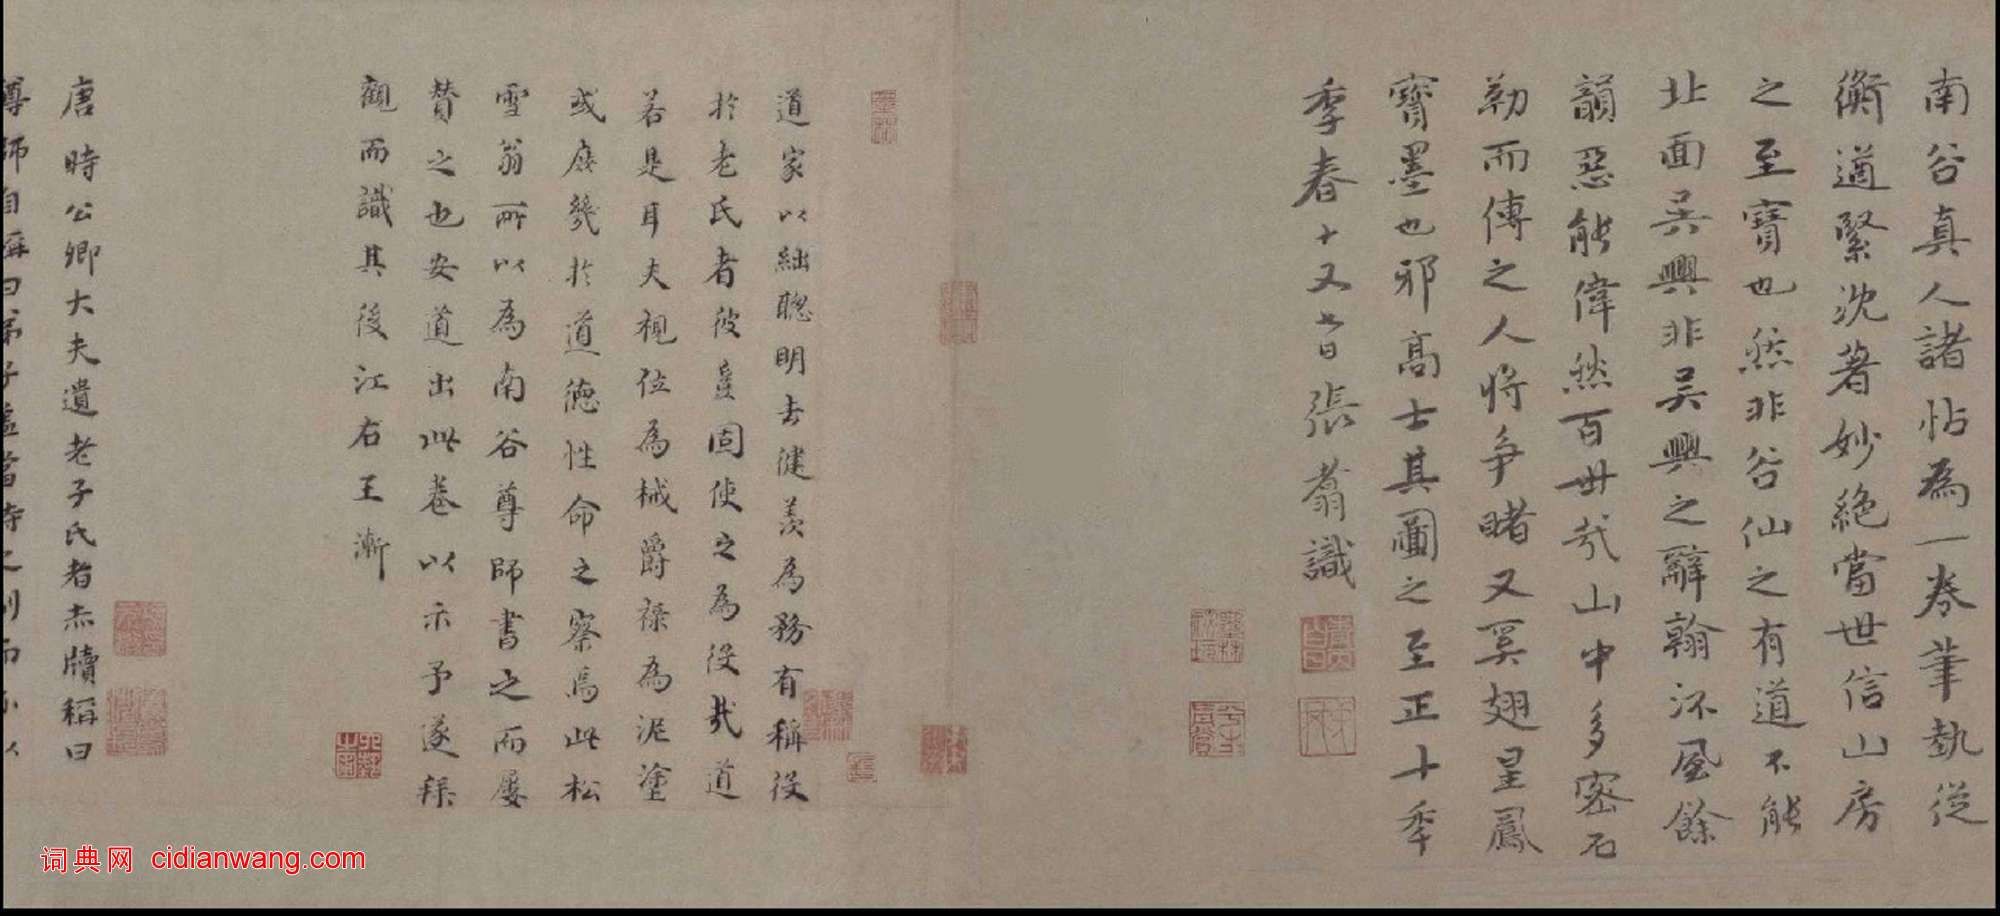 南谷真人諸帖為一卷筆執從
衡遒緊沈著妙絕當世信山房
之至寶也然非谷仙之有道不能
北面吳興非吳興之辭翰沠風餘
韻惡能偉然百世哉山中多密石
勒而傳之人將爭睹又奚翅星鳳
寶墨也邪高士其圖之至正十年
季春十又七日張翥識
道家以絀聰明去健羨為務有稱役
於老氏者彼豈固使之為役哉道
若是耳夫視位為械爵祿為泥塗
或庶幾於道德性命之察焉此松
雪翁所以為南谷尊師書之而屢
贊之也安道出此卷以示予遂拜
觀而識其後江右王漸
唐時公卿大夫遺老子氏者赤牘稱曰
尊師自稱曰弟子孟
词典网 cidianwang.com